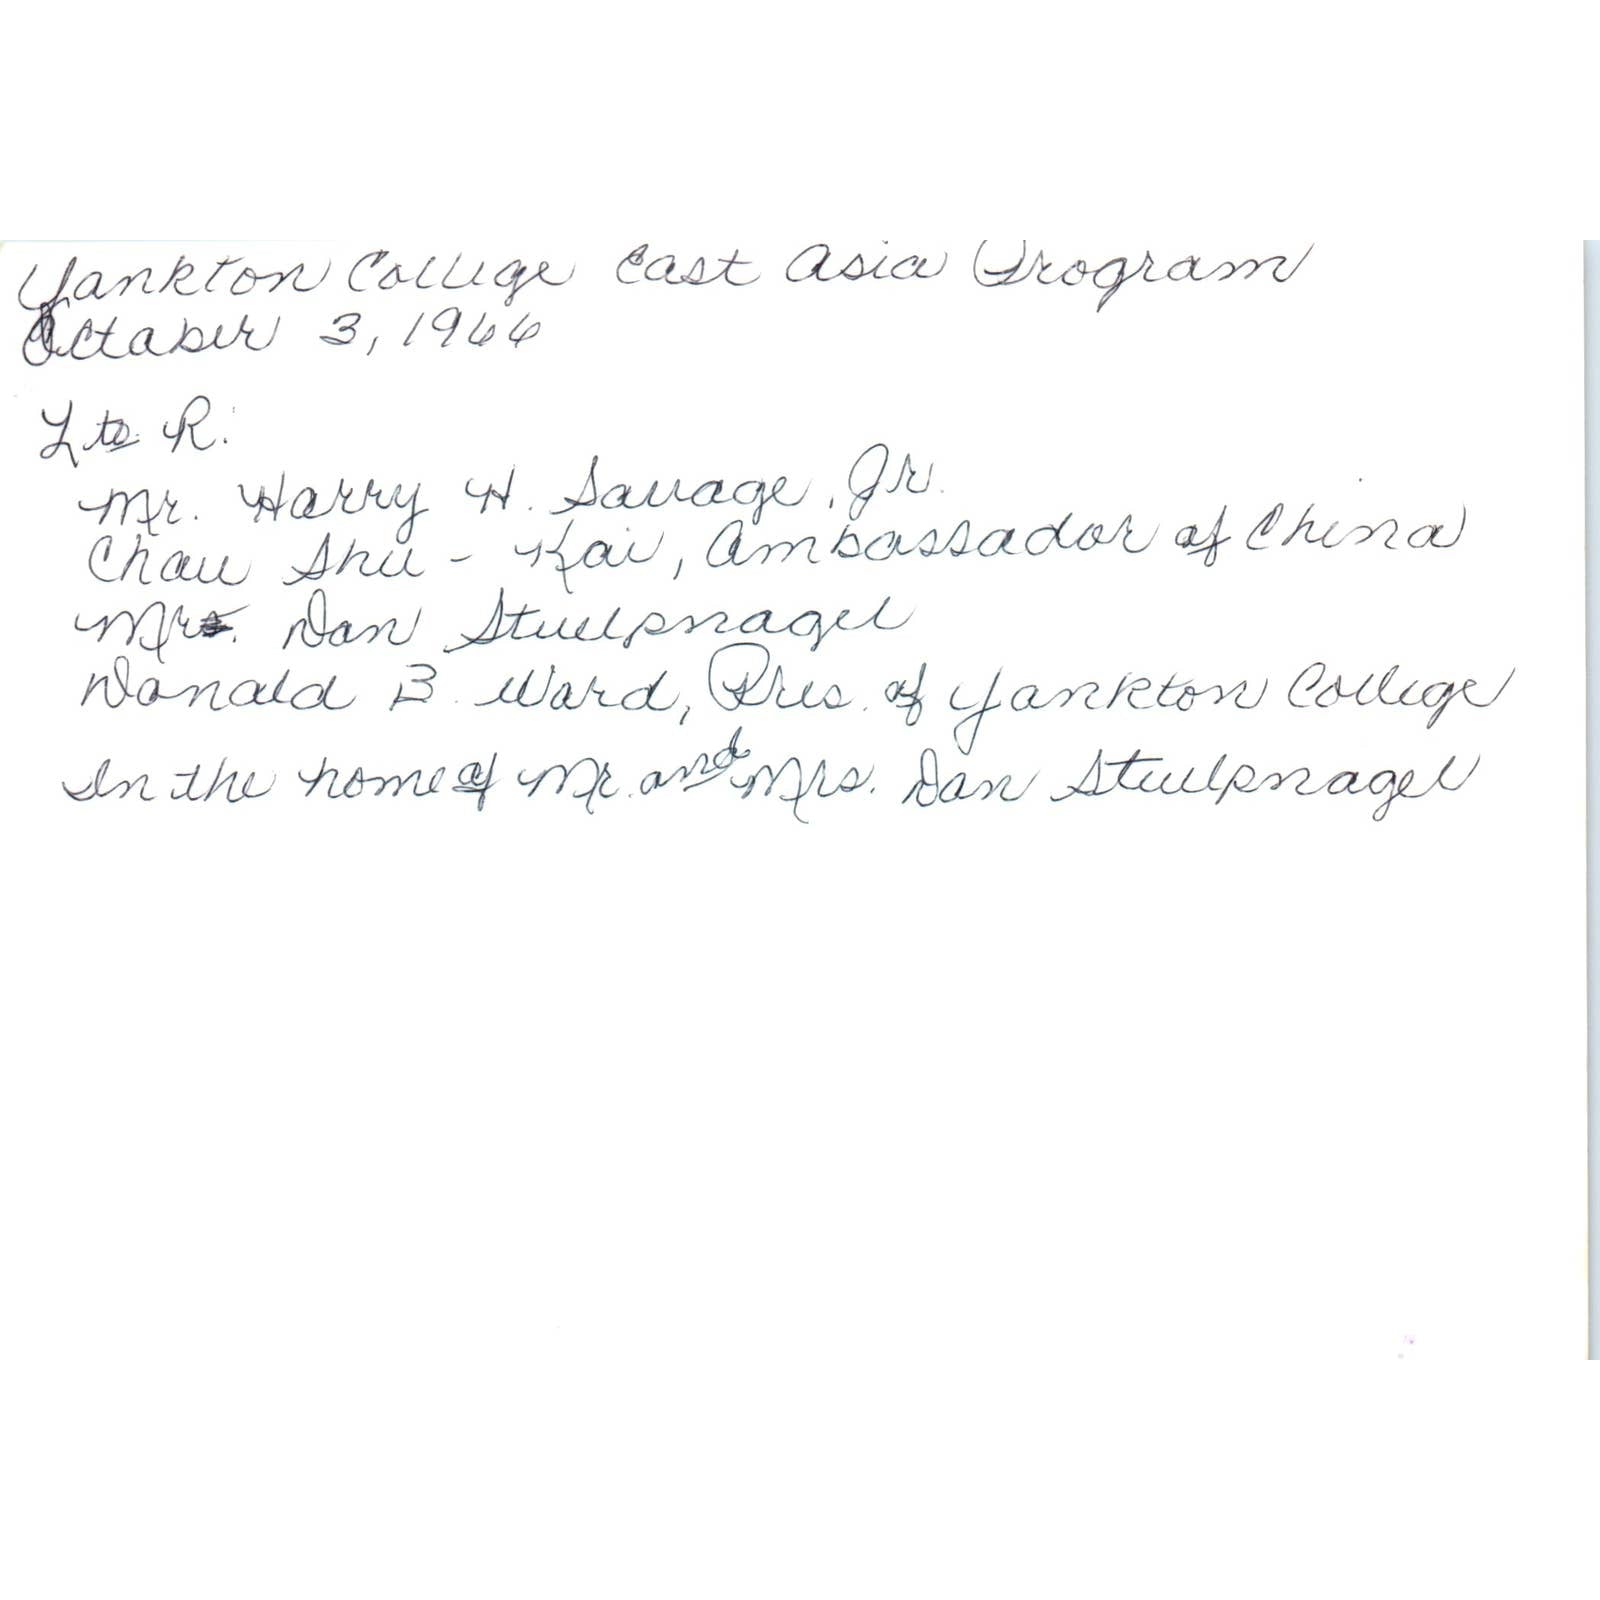 Yankton College East Asia Program
October 3, 1966
L to R:
Mr. Harry H. Savage, Jr.
Chow Shu-Kai, Ambassador of China
Mr. Dan Stuelpnagel
Donald B. Ward, Pres. of Yankton College
In the home of Mr. and Mrs. Dan Stuelpnagel